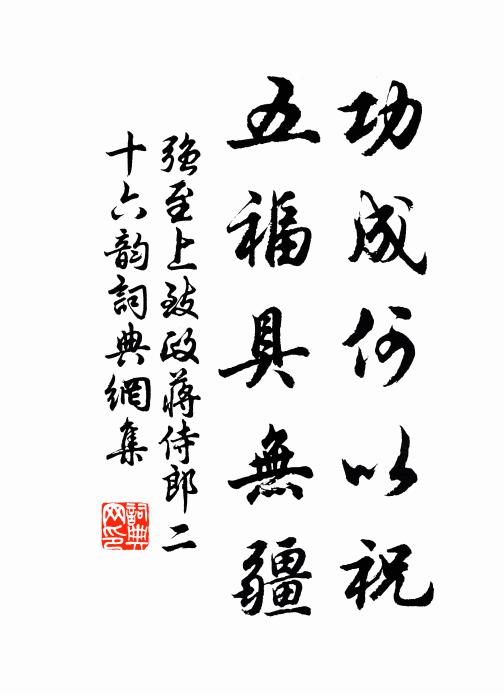 功成何以祝
五福具無疆
強至上致政蔣侍郎二
十六韵詞典網集
詞典网印